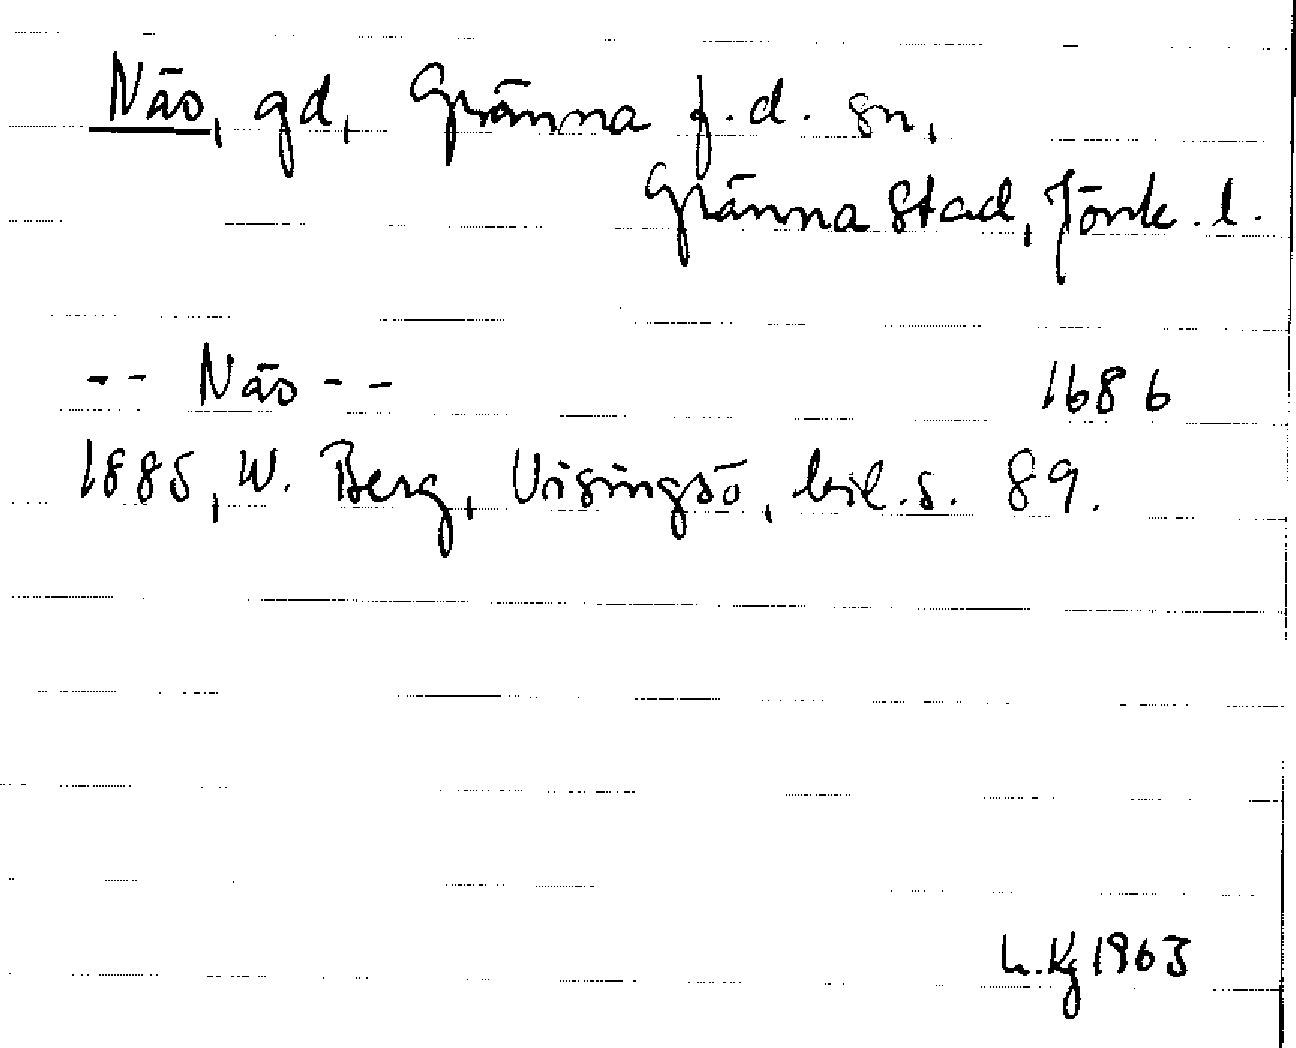 Näs, gd, Gränna f.d. sn,
Gränna stad, Jönk. l.
-- Näs -- 1686
1885, W. Berg, Visingsö, bil. s. 89.
L. Kg 1963